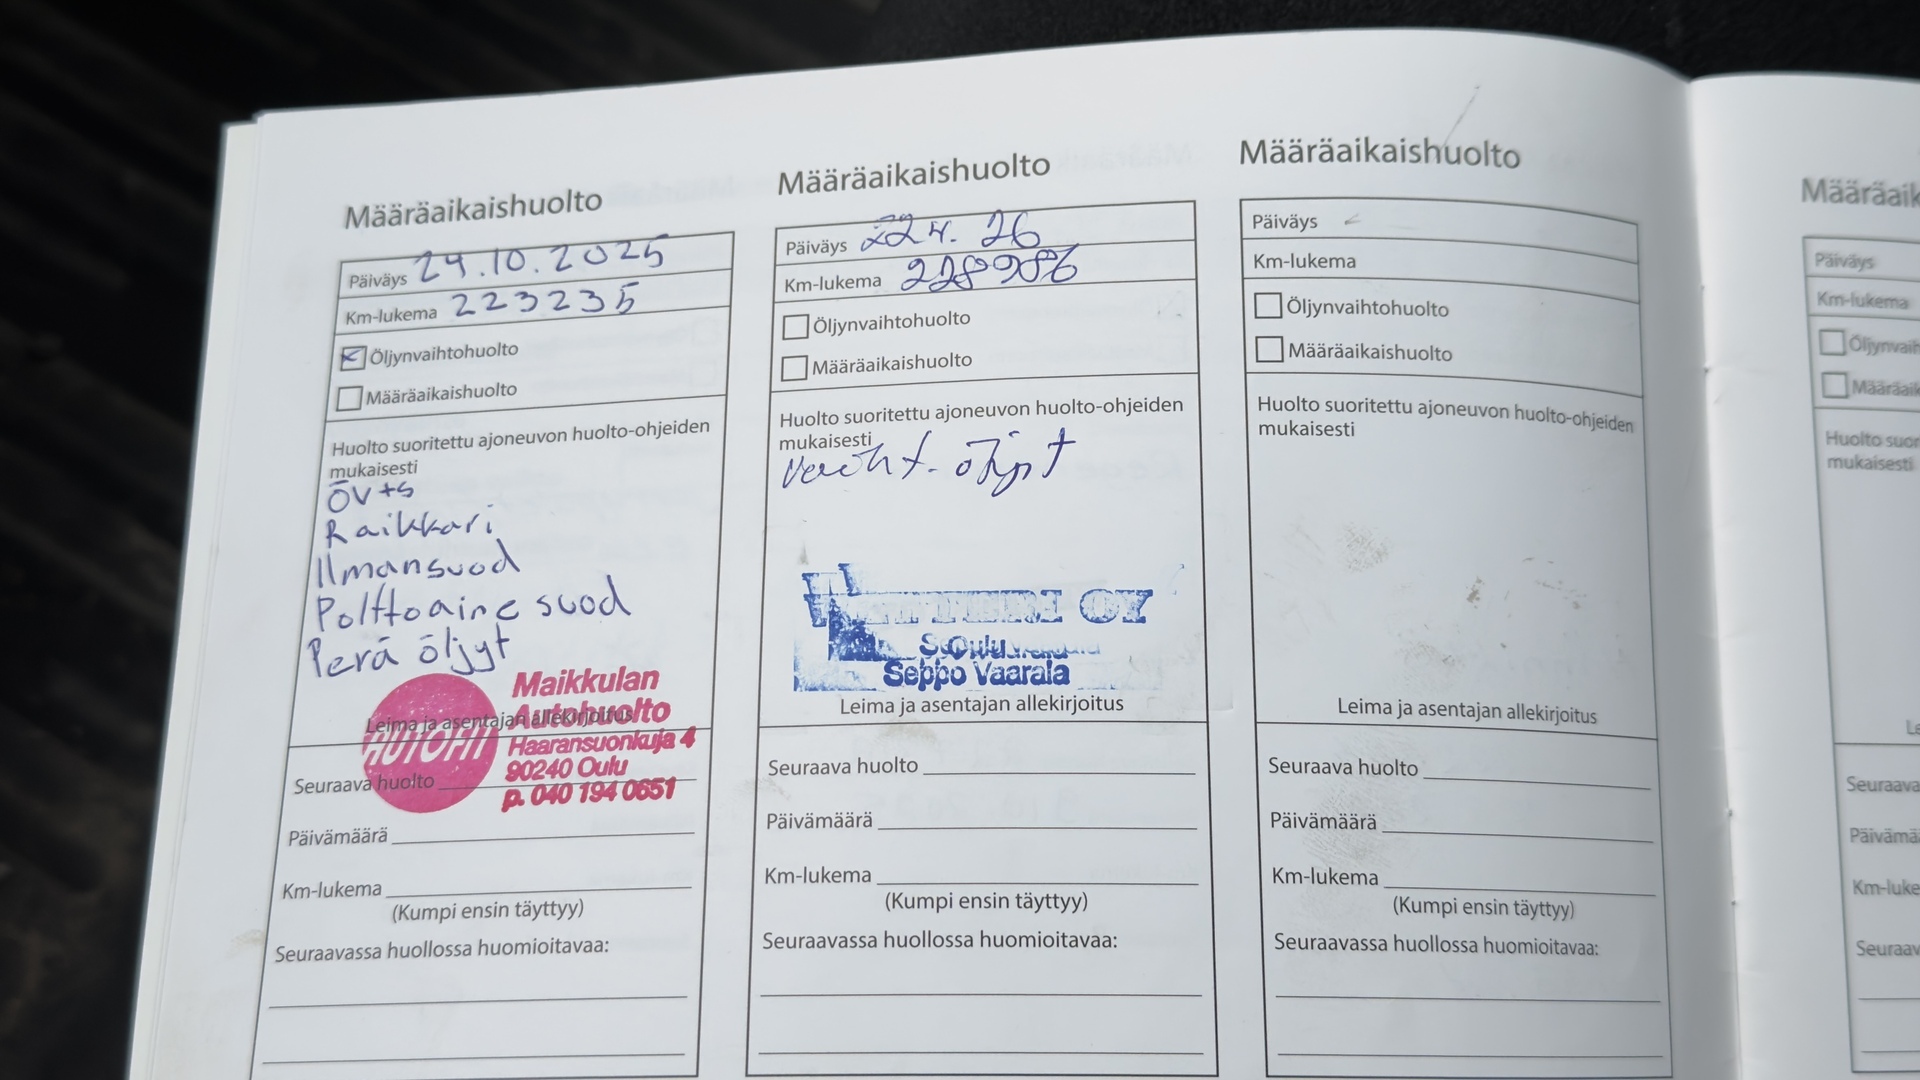 Määräaikaishuolto
Päiväys 24.10.2025
Km-lukema 223235
Öljynvaihtohuolto
Määräaikaishuolto
Huolto suoritettu ajoneuvon huolto-ohjeiden
mukaisesti
ÖV+S
Raikkari
Ilmansuod
Polttoaine suod
Perä öljyt
Maikkulan
Autohuolto
Leima ja asentajan allekirjoitus
AUTOFIT
Haaransuonkuja 4
90240 Oulu
p. 040 194 0651
Seuraava huolto
Päivämäärä
Km-lukema
(Kumpi ensin täyttyy)
Seuraavassa huollossa huomioitavaa:
Määräaikaishuolto
Päiväys 26
Km-lukema 228986
Öljynvaihtohuolto
Määräaikaishuolto
Huolto suoritettu ajoneuvon huolto-ohjeiden
mukaisesti
öljyt
OY
Oulu
Seppo Vaarala
Leima ja asentajan allekirjoitus
Seuraava huolto
Päivämäärä
Km-lukema
(Kumpi ensin täyttyy)
Seuraavassa huollossa huomioitavaa:
Määräaikaishuolto
Päiväys
Km-lukema
Öljynvaihtohuolto
Määräaikaishuolto
Huolto suoritettu ajoneuvon huolto-ohjeiden
mukaisesti
Leima ja asentajan allekirjoitus
Seuraava huolto
Päivämäärä
Km-lukema
(Kumpi ensin täyttyy)
Seuraavassa huollossa huomioitavaa:
Määräaik
Päiväys
Km-lukema
Öljynvaih
Määräaik
Huolto suor
mukaisesti
Le
Seuraava
Päivämä
Km-luke
Seuraav